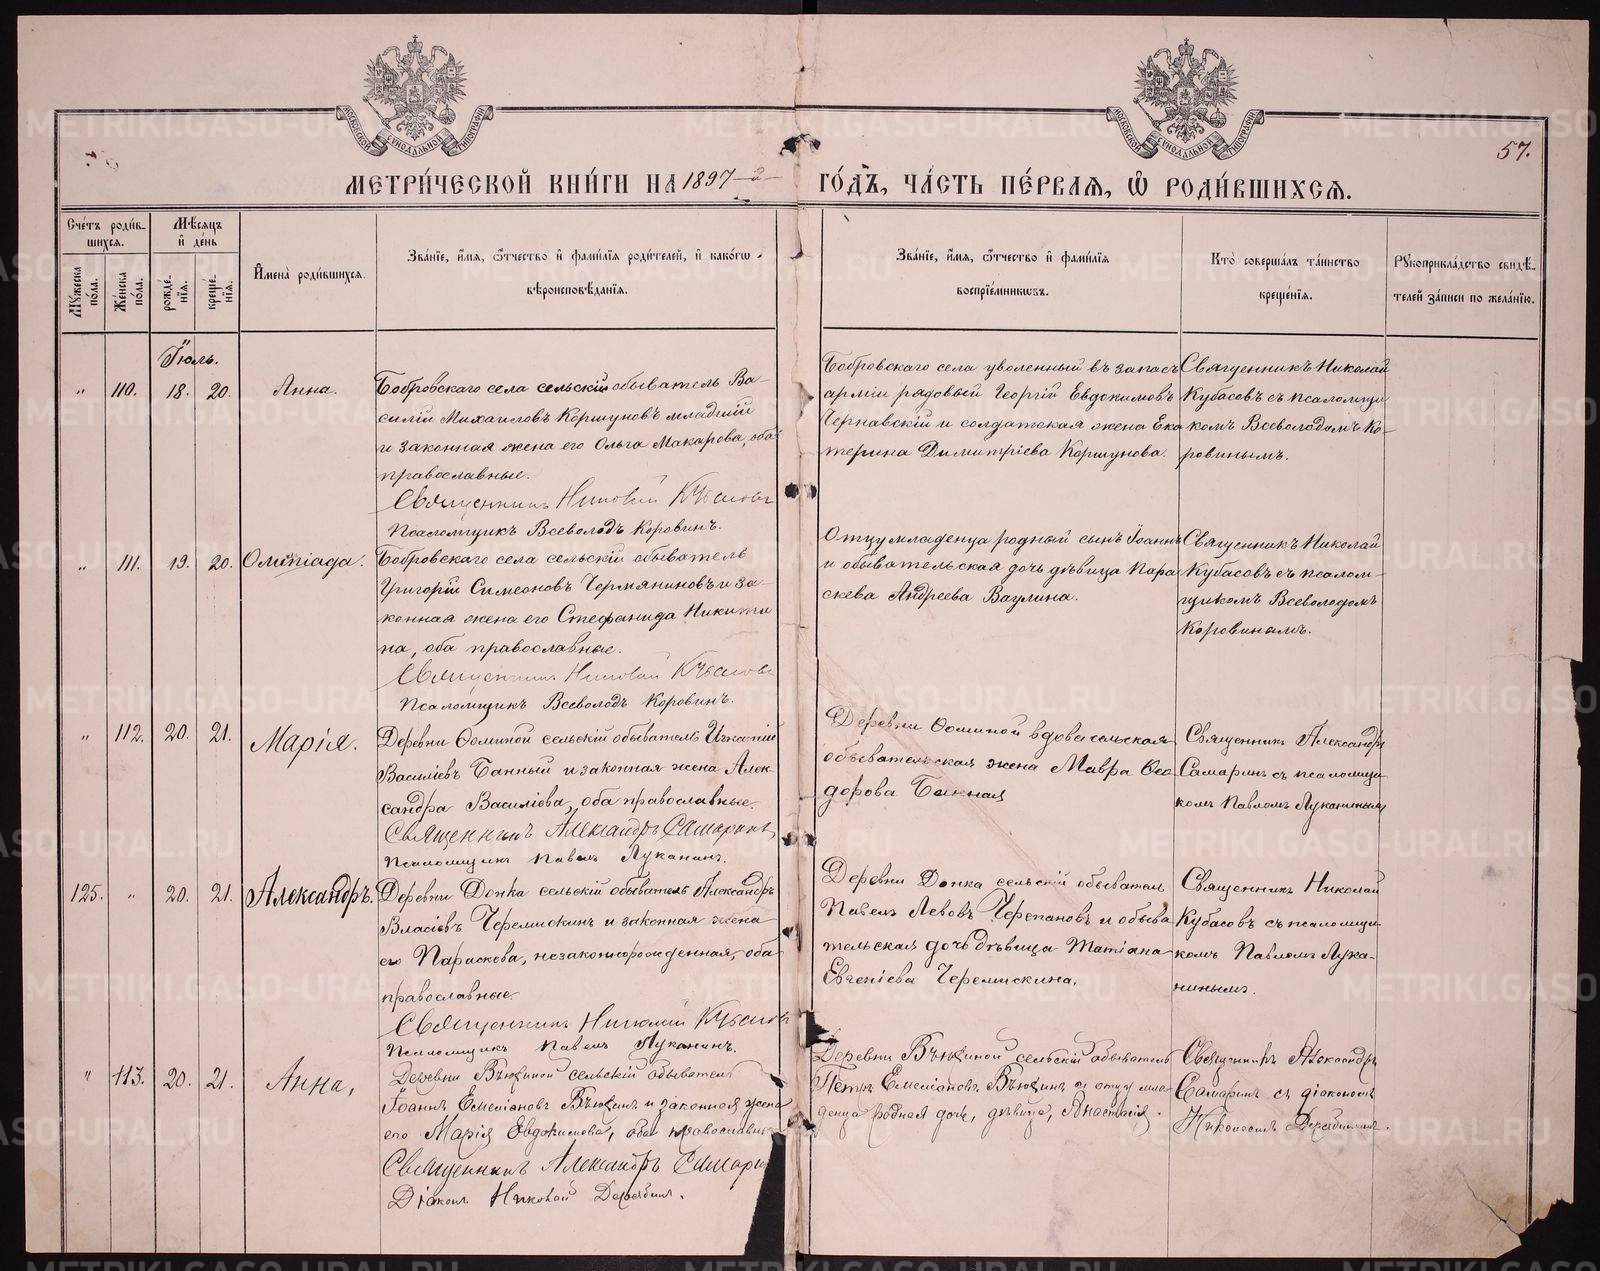 57.
МЕТРИ́ЧЕСКОЙ КНИ́ГИ НА 1897-й ГО́ДЪ, ЧА́СТЬ ПЕ́РВАЯ, Ѿ РОДИ́ВШИХСЯ.
Сче́тъ роди́в-
шихся.
Мѣ́сяцъ
и҆ де́нь
Мꙋ́жеска
по́ла.
Же́нска
по́ла.
рожде́-
нїя.
креще́-
нїя.
И҆мена̀ роди́вшихся.
Зва́нїе, и҆́мя, ѻ҆́тчество и҆ фами́лїя роди́телей, и҆ како́гѡ
вѣроисповѣ́данїя.
Зва́нїе, и҆́мя, ѻ҆́тчество и҆ фами́лїя
воспрїе́мникѡвъ.
Кто̀ соверша́лъ та́инство
креще́нїя.
Рꙋкоприкла́дство свидѣ́-
телей за́писи по жела́нїю.
Іюль.
" 110. 18. 20. Анна.
Бобровскаго села сельскій обыватель Ва-
силій Михаиловъ Коршуновъ младшій
и законная жена его Ольга Макарова, оба
православные.
Священникъ Николай Кубасовъ
Псаломщикъ Всеволодъ Коровинъ.
Бобровскаго села уволенный въ запасъ
арміи рядовый Георгій Евдокимовъ
Чернавскій и солдатская жена Ека
терина Димитріева Коршунова.
Священникъ Николай
Кубасовъ съ псаломщи
комъ Всеволодомъ Ко-
ровинымъ.
" 111. 19. 20. Олимпіада.
Бобровскаго села сельскій обыватель
Григорій Симеоновъ Чермяниновъ и за-
конная жена его Стефанида Никити
на, оба православные.
Священникъ Николай Кубасовъ
Псаломщикъ Всеволодъ Коровинъ.
Отцу младенца родный сынъ Іоаннъ
и обывательская дочь дѣвица Пара
скева Андреева Ваулина.
Священникъ Николай
Кубасовъ съ псалом-
щикомъ Всеволодомъ
Коровинымъ.
" 112. 20. 21. Марія.
Деревни Ѳоминой сельскій обыватель Игнатій
Василіевъ Банный и законная жена Алек-
сандра Василіева, оба православные.
Священникъ Александръ Самаринъ
Псаломщикъ Павелъ Луканинъ.
Деревни Ѳоминой вдова сельская
обывательская жена Мавра Ѳео
дорова Банная
Священникъ Александръ
Самаринъ съ псаломщи
комъ Павломъ Луканинымъ
125. " 20. 21. Александръ.
Деревни Донка сельскій обыватель Александръ
Власіевъ Черемискинъ и законная жена
его Параскова, незаконнорожденная, оба
православные.
Священникъ Николай Кубасовъ
Псаломщикъ Павелъ Луканинъ.
Деревни Донка сельскій обыватель
Павелъ Левовъ Черепановъ и обыва
тельская дочь дѣвица Татіана
Евгеніева Черемискина.
Священникъ Николай
Кубасовъ съ псаломщи
комъ Павломъ Лука-
нинымъ.
" 113. 20. 21. Анна,
Деревни Вьюхиной сельскій обыватель
Іоаннъ Емеліановъ Вьюхинъ и законная жена
его Марія Евдокимова, оба православные
Священникъ Александръ Самаринъ
Діаконъ Николай Дерябинъ.
Деревни Вьюхиной сельскій обыватель
Петръ Емеліановъ Вьюхинъ и отцу мла-
денца родная дочь, дѣвица, Анастасія.
Священникъ Александръ
Самаринъ съ діакономъ
Николаемъ Дерябинымъ.
METRIKI.GASO-URAL.RU